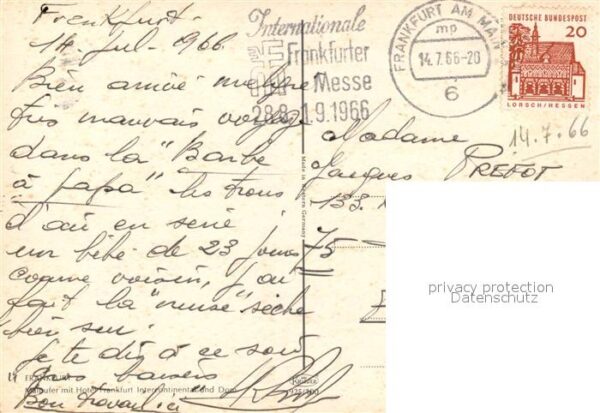 Frankfurt.
14 Jul - 1966
Bien arrivé
très mauvais voyage
dans la "Barbe
à papa" les trous
d'air en série
un bébé de 23 jours
comme voisin, j'ai
fait la "nurse" sèche
bien sur.
Je te dis à ce soir
Gros baisers
Bon travail ici
Internationale
Frankfurter
Messe
28.8.-1.9.1966
FRANKFURT AM MAIN
mp
14.7.66-20
6
DEUTSCHE BUNDESPOST
20
LORSCH/HESSEN
14.7.66
Madame
Jacques PREFOT
133.
75
Made in Western Germany
privacy protection
Datenschutz
FRANKFURT
Mainufer mit Hotel Frankfurt Intercontinental und Dom